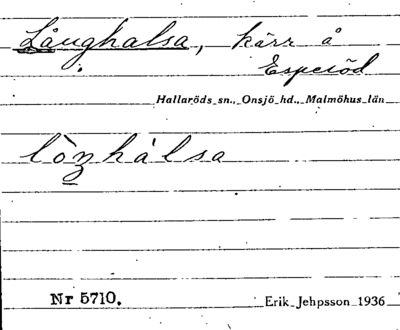 Långhalsa, kärr å
Esperöd
Hallaröds sn., Onsjö hd., Malmöhus län
lòŋhàlsa
Nr 5710.
Erik Jehpsson 1936